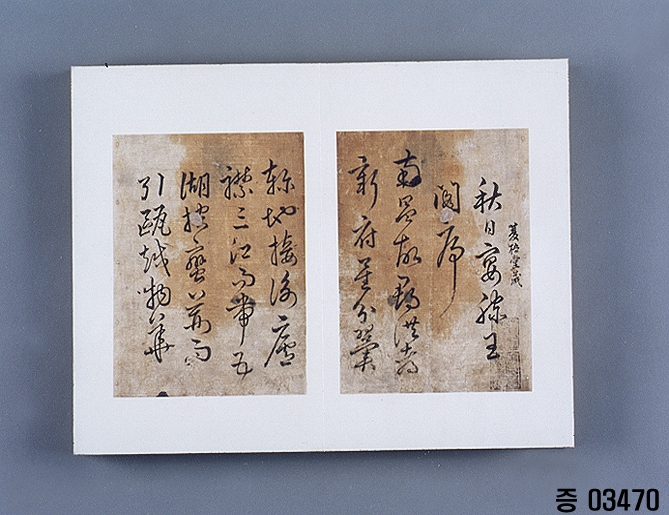 堂藏
秋日宴滕王
閣序
南昌故郡洪都
新府星分翼
軫地接衡廬
襟三江而帶五
湖控蠻荊而
引甌越物華
증 03470